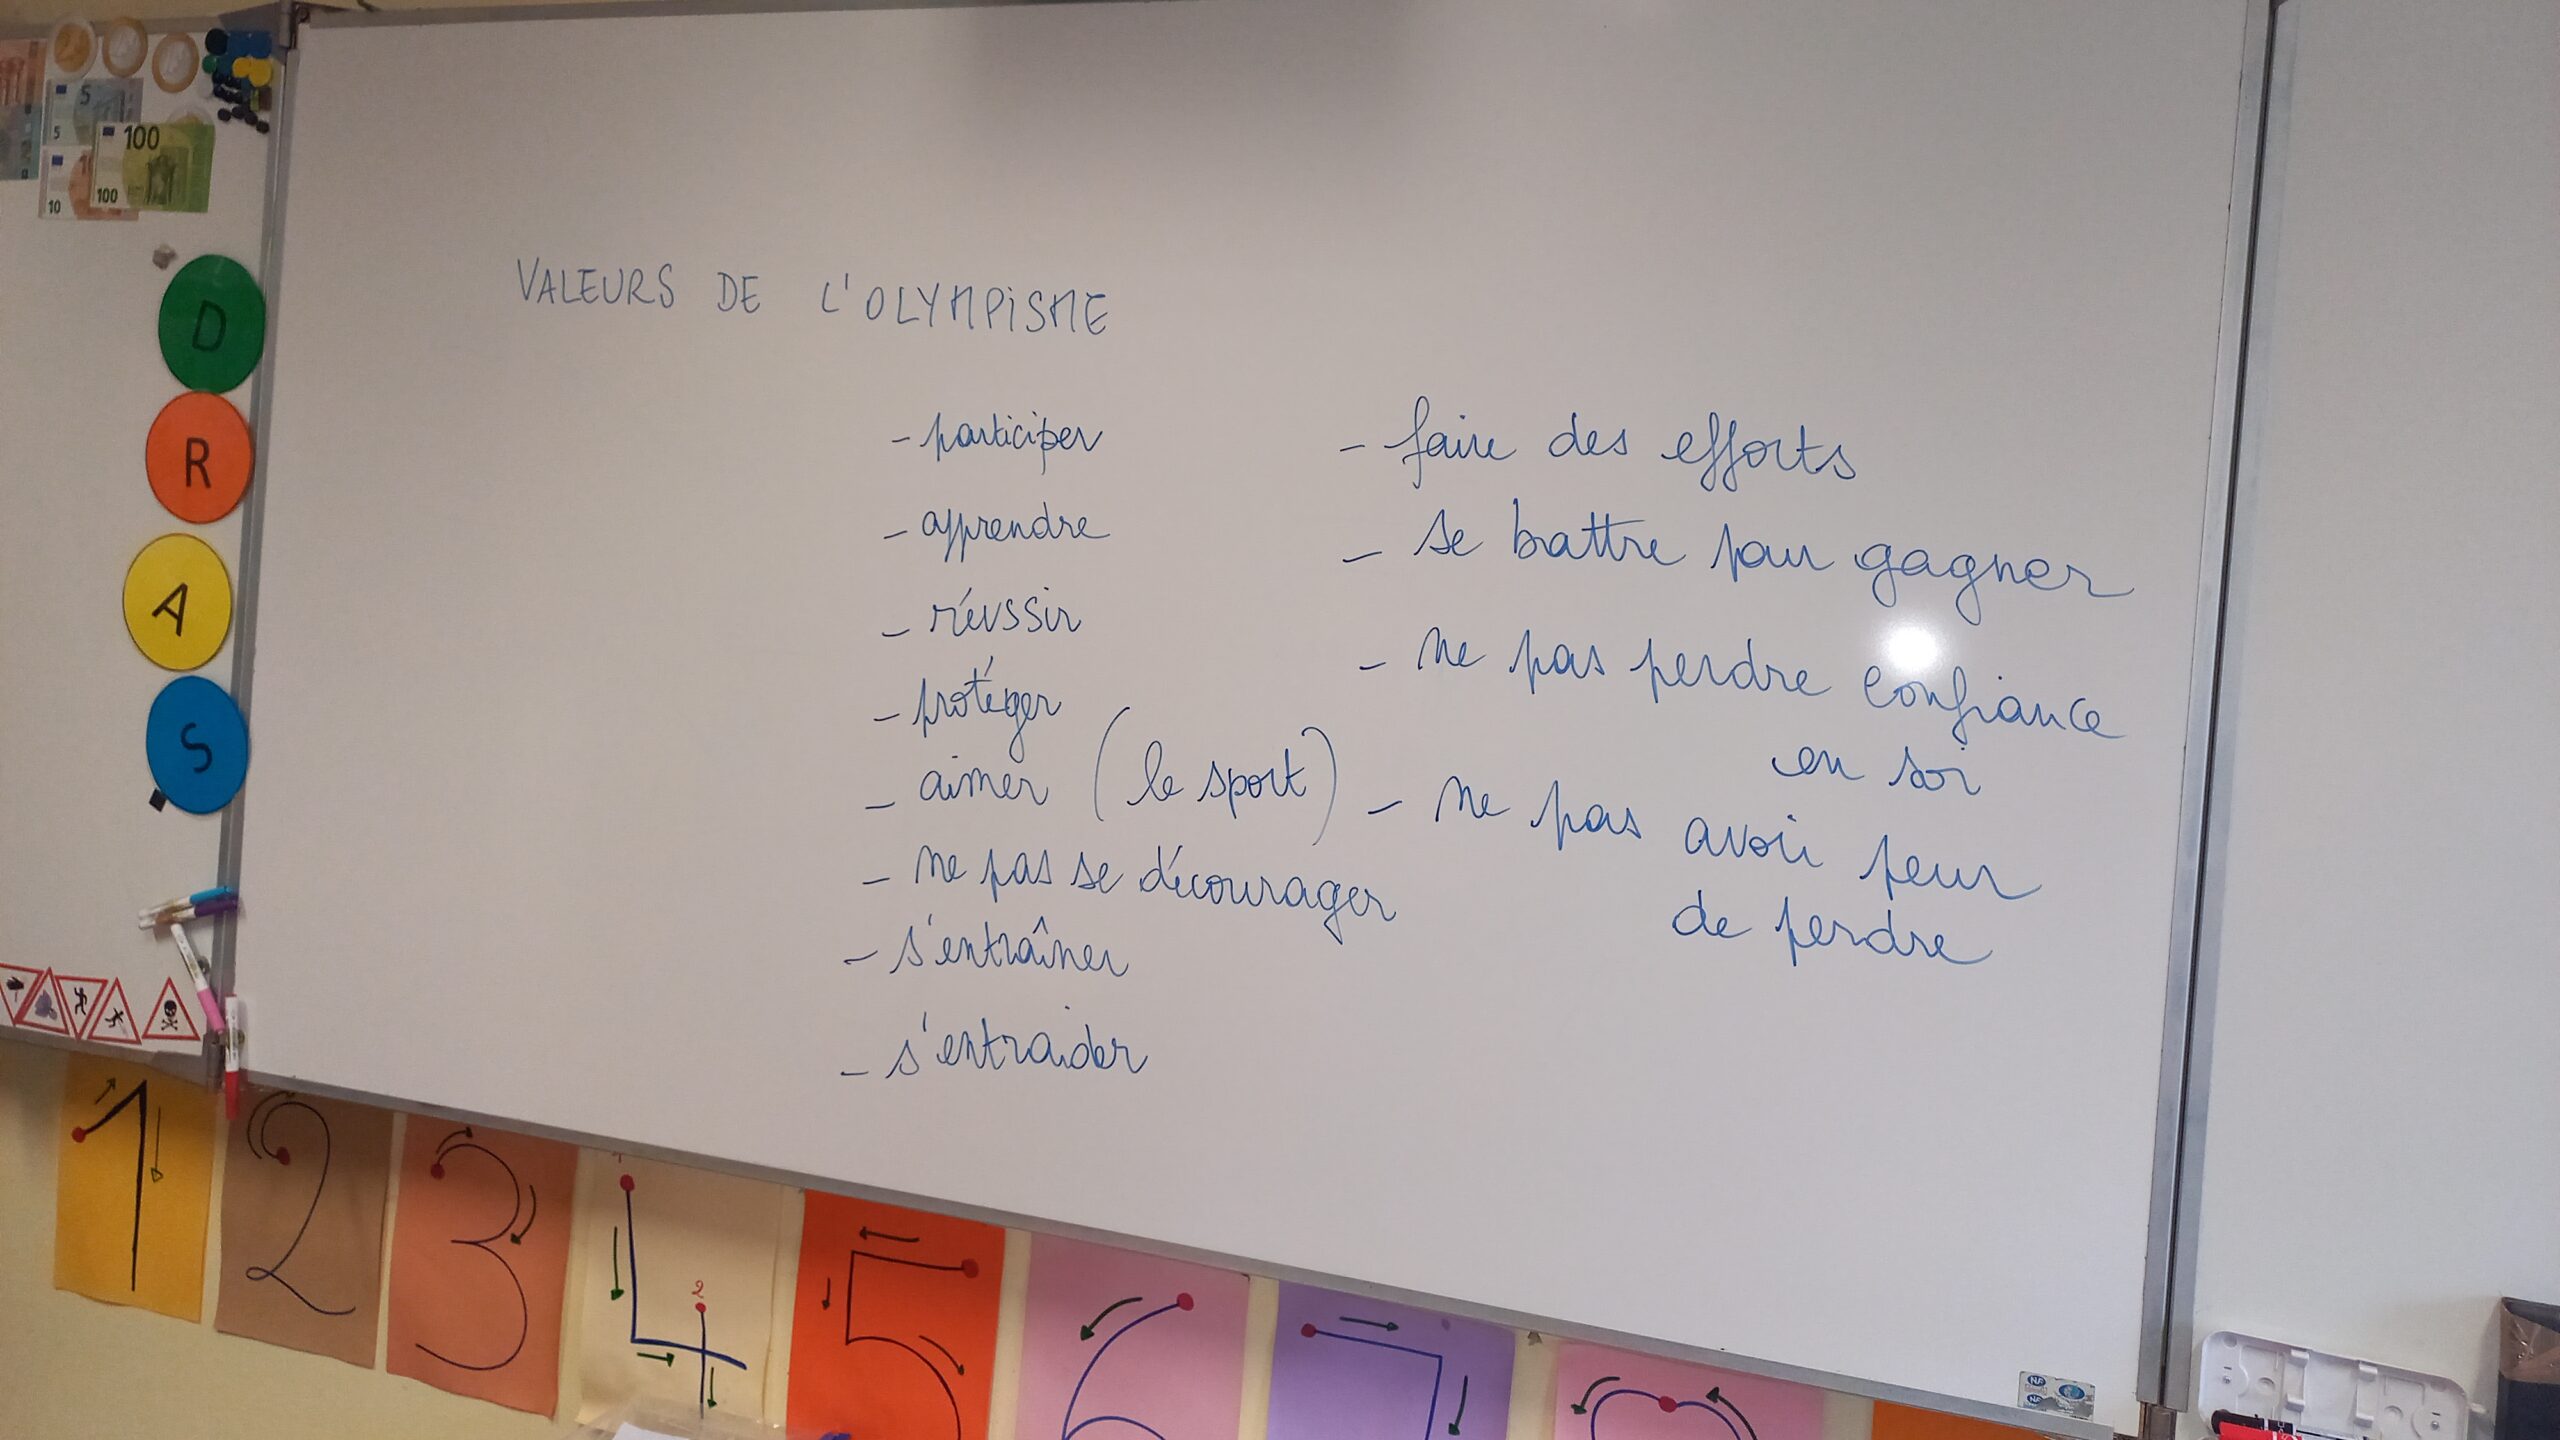 5
5
100
10
10
100
D
R
A
S
VALEURS DE L'OLYMPISME
- participer
- apprendre
- réussir
- protéger
- aimer (le sport)
- ne pas se décourager
- s'entraîner
- s'entraider
- faire des efforts
- se battre pour gagner
- ne pas perdre confiance
en soi
- ne pas avoir peur
de perdre
1
2
3
1
4
2
5
6
7
NF
NF